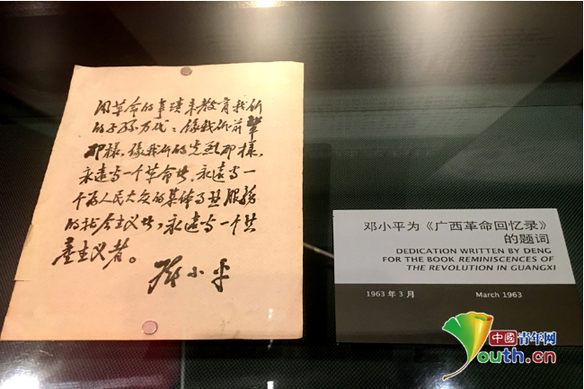 用革命的事蹟来教育我们
的子孙万代：像我们前輩
那樣，像我们的先烈那樣，
永遠当一个革命者，永遠当一
个为人民大众的集体事业服务
的社会主义者，永遠当一个共
產主义者。
邓小平
邓小平为《广西革命回忆录》
的题词
DEDICATION WRITTEN BY DENG
FOR THE BOOK REMINISCENCES OF
THE REVOLUTION IN GUANGXI
1963 年 3 月 March 1963
中國青年网
Youth.cn